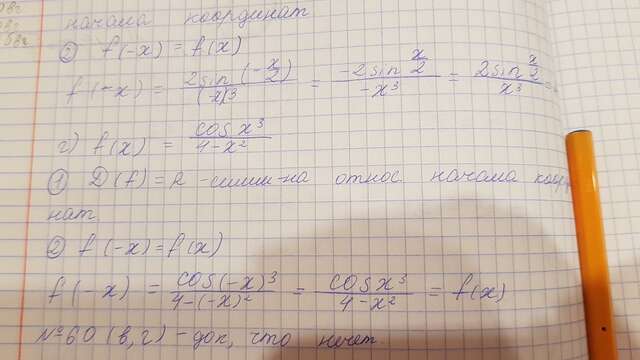 начала координат
② f(-x) = f(x)
f(-x) = 2sin(-x/2)/(-x)³ = -2sin x/2 / -x³ = 2sin x/2 / x³ =
г) f(x) = cos x³ / 4-x²
① D(f) = R - симм-на относ начала коор
нат
② f(-x) = f(x)
f(-x) = cos(-x)³ / 4-(-x)² = cos x³ / 4-x² = f(x)
№ 60 (в, г) - док, что нечет.